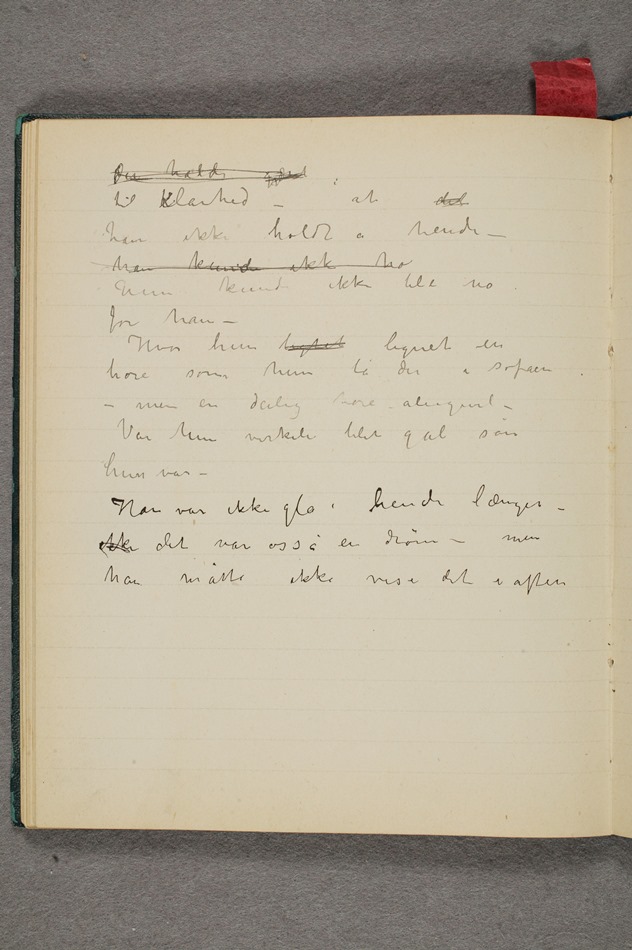 til Klarhed – at det
han ikke holdt a hende –
han kunde ikk ho
Hun kunde ikke bli no
for han –
Hvor hun lignet en
hore som hun lå der i sofaen
– men en deilig hore alligevel –
Var hun virkeli blet gal som
hun var –
Han var ikke gla i hende længer –
ikke det var osså en drøm – men
han måtte ikke vise det i aften